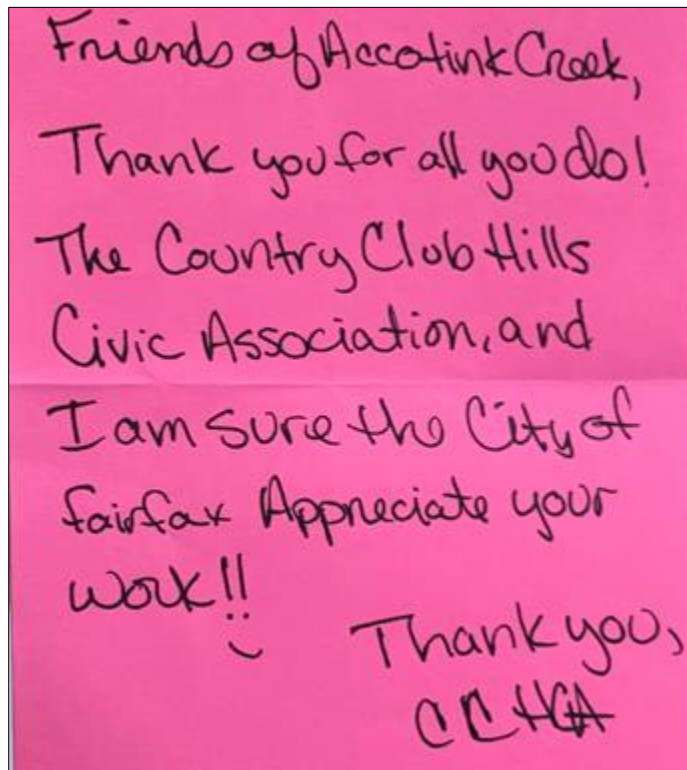 Friends of Accotink Creek,
Thank you for all you do!
The Country Club Hills
Civic Association, and
I am sure the City of
fairfax Appreciate your
work!!
Thank you,
CCHCA